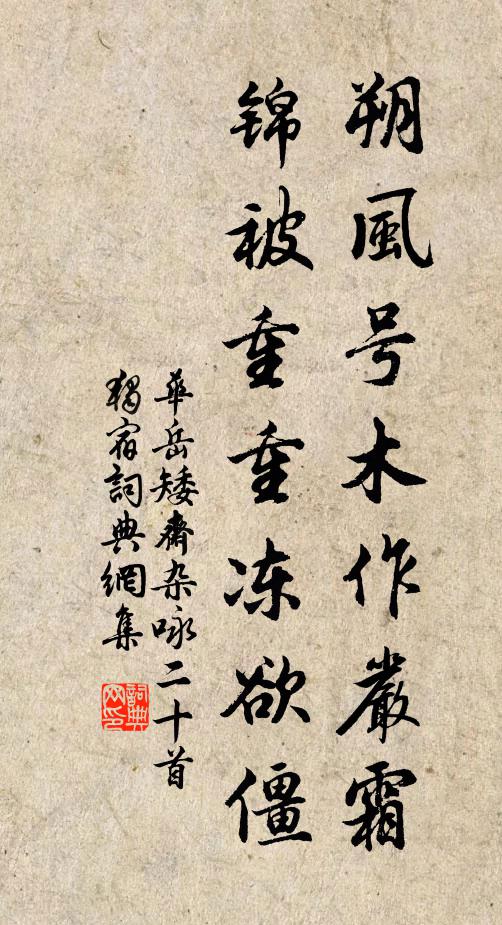 朔風号木作嚴霜
锦被重重冻欲僵
華岳矮齋杂咏二十首
獨宿詞典網集
詞典网印